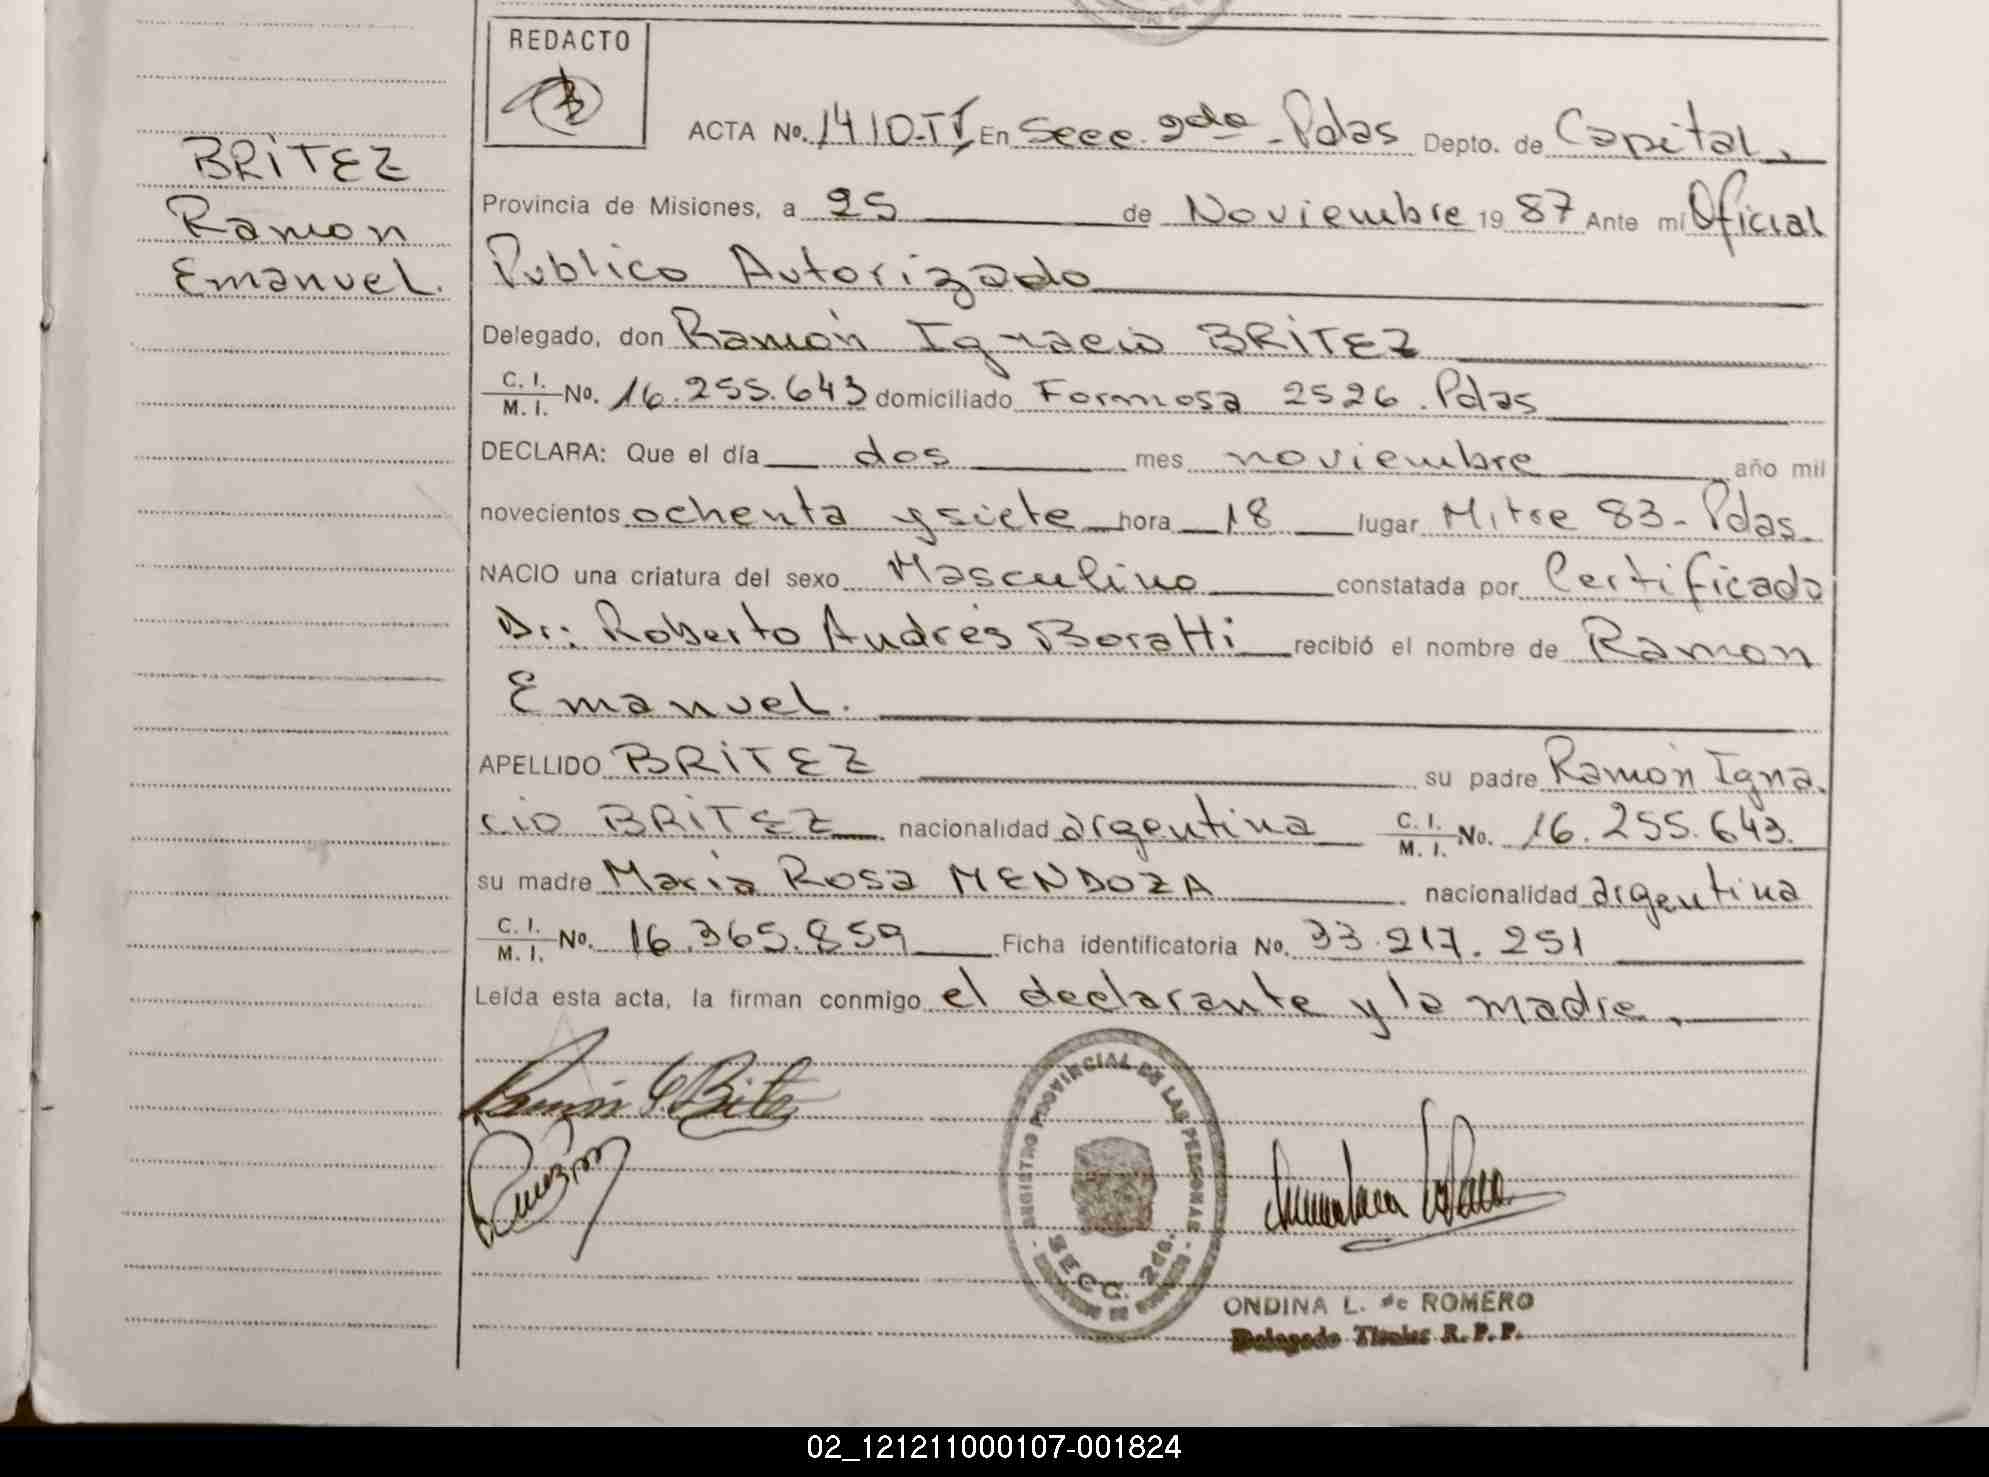 REDACTO
BRITEZ
Ramon
Emanuel.
ACTA No. 1410-TV En Secc. 2da - Pdas Depto. de Capital,
Provincia de Misiones, a 25 de Noviembre 1987 Ante mí Oficial
Publico Autorizado
Delegado, don Ramón Ignacio BRITEZ
C. I.
M. I. No. 16.255.643 domiciliado Formosa 2526. Pdas
DECLARA: Que el día dos mes noviembre año mil
novecientos ochenta y siete hora 18 lugar Mitre 83 - Pdas.
NACIO una criatura del sexo Masculino constatada por Certificado
Dr.: Roberto Andrés Boratti recibió el nombre de Ramon
Emanuel.
APELLIDO BRITEZ su padre Ramón Igna.
cio BRITEZ nacionalidad argentina C. I.
M. I. No. 16.255.643.
su madre Maria Rosa MENDOZA nacionalidad argentina
C. I.
M. I. No. 16.365.859 Ficha identificatoria No. 33.217.251
Leída esta acta, la firman conmigo el declarante y la madre.
REGISTRO PROVINCIAL DE LAS PERSONAS
SECC. 2da.
ONDINA L. de ROMERO
Delegado Titular R. P. P.
02_121211000107-001824